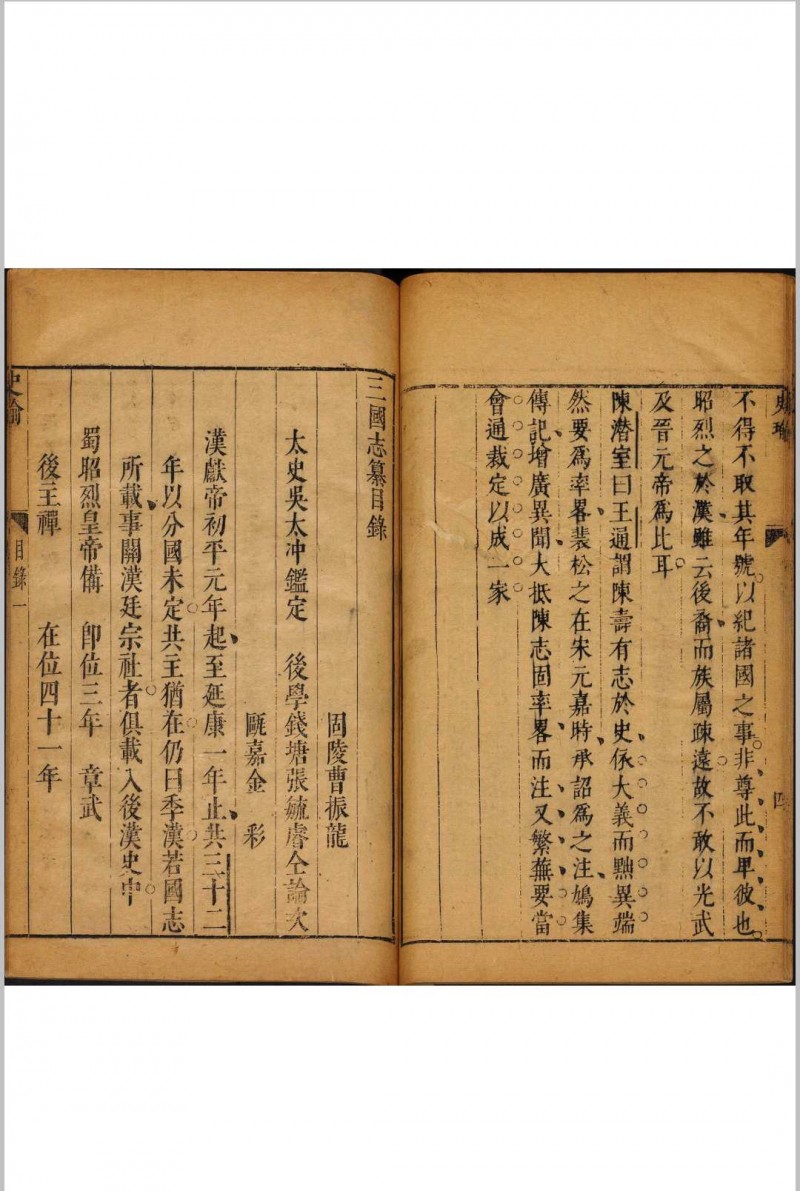 史
四
不得不取其年號以紀諸國之事非尊此而卑彼也
昭烈之於漢雖云後裔而族屬疎遠故不敢以光武
及晉元帝爲比耳
陳潜室曰王通謂陳壽有志於史依大義而黜異端
然要爲率畧裴松之在宋元嘉時承詔爲之注鳩集
傳記增廣異聞大抵陳志固率畧而注又繁蕪要當
會通裁定以成一家
三國志纂目錄
固陵曹振龍
太史吳太冲鑑定 後學錢塘張毓睿仝論次
甌嘉金 彩
漢獻帝初平元年起至延康一年止共三十二
年以分國未定共主猶在仍曰季漢若國志
所載事關漢廷宗社者俱載入後漢史中
蜀昭烈皇帝備 卽位三年 章武
後主禪 在位四十一年
史論 目錄一